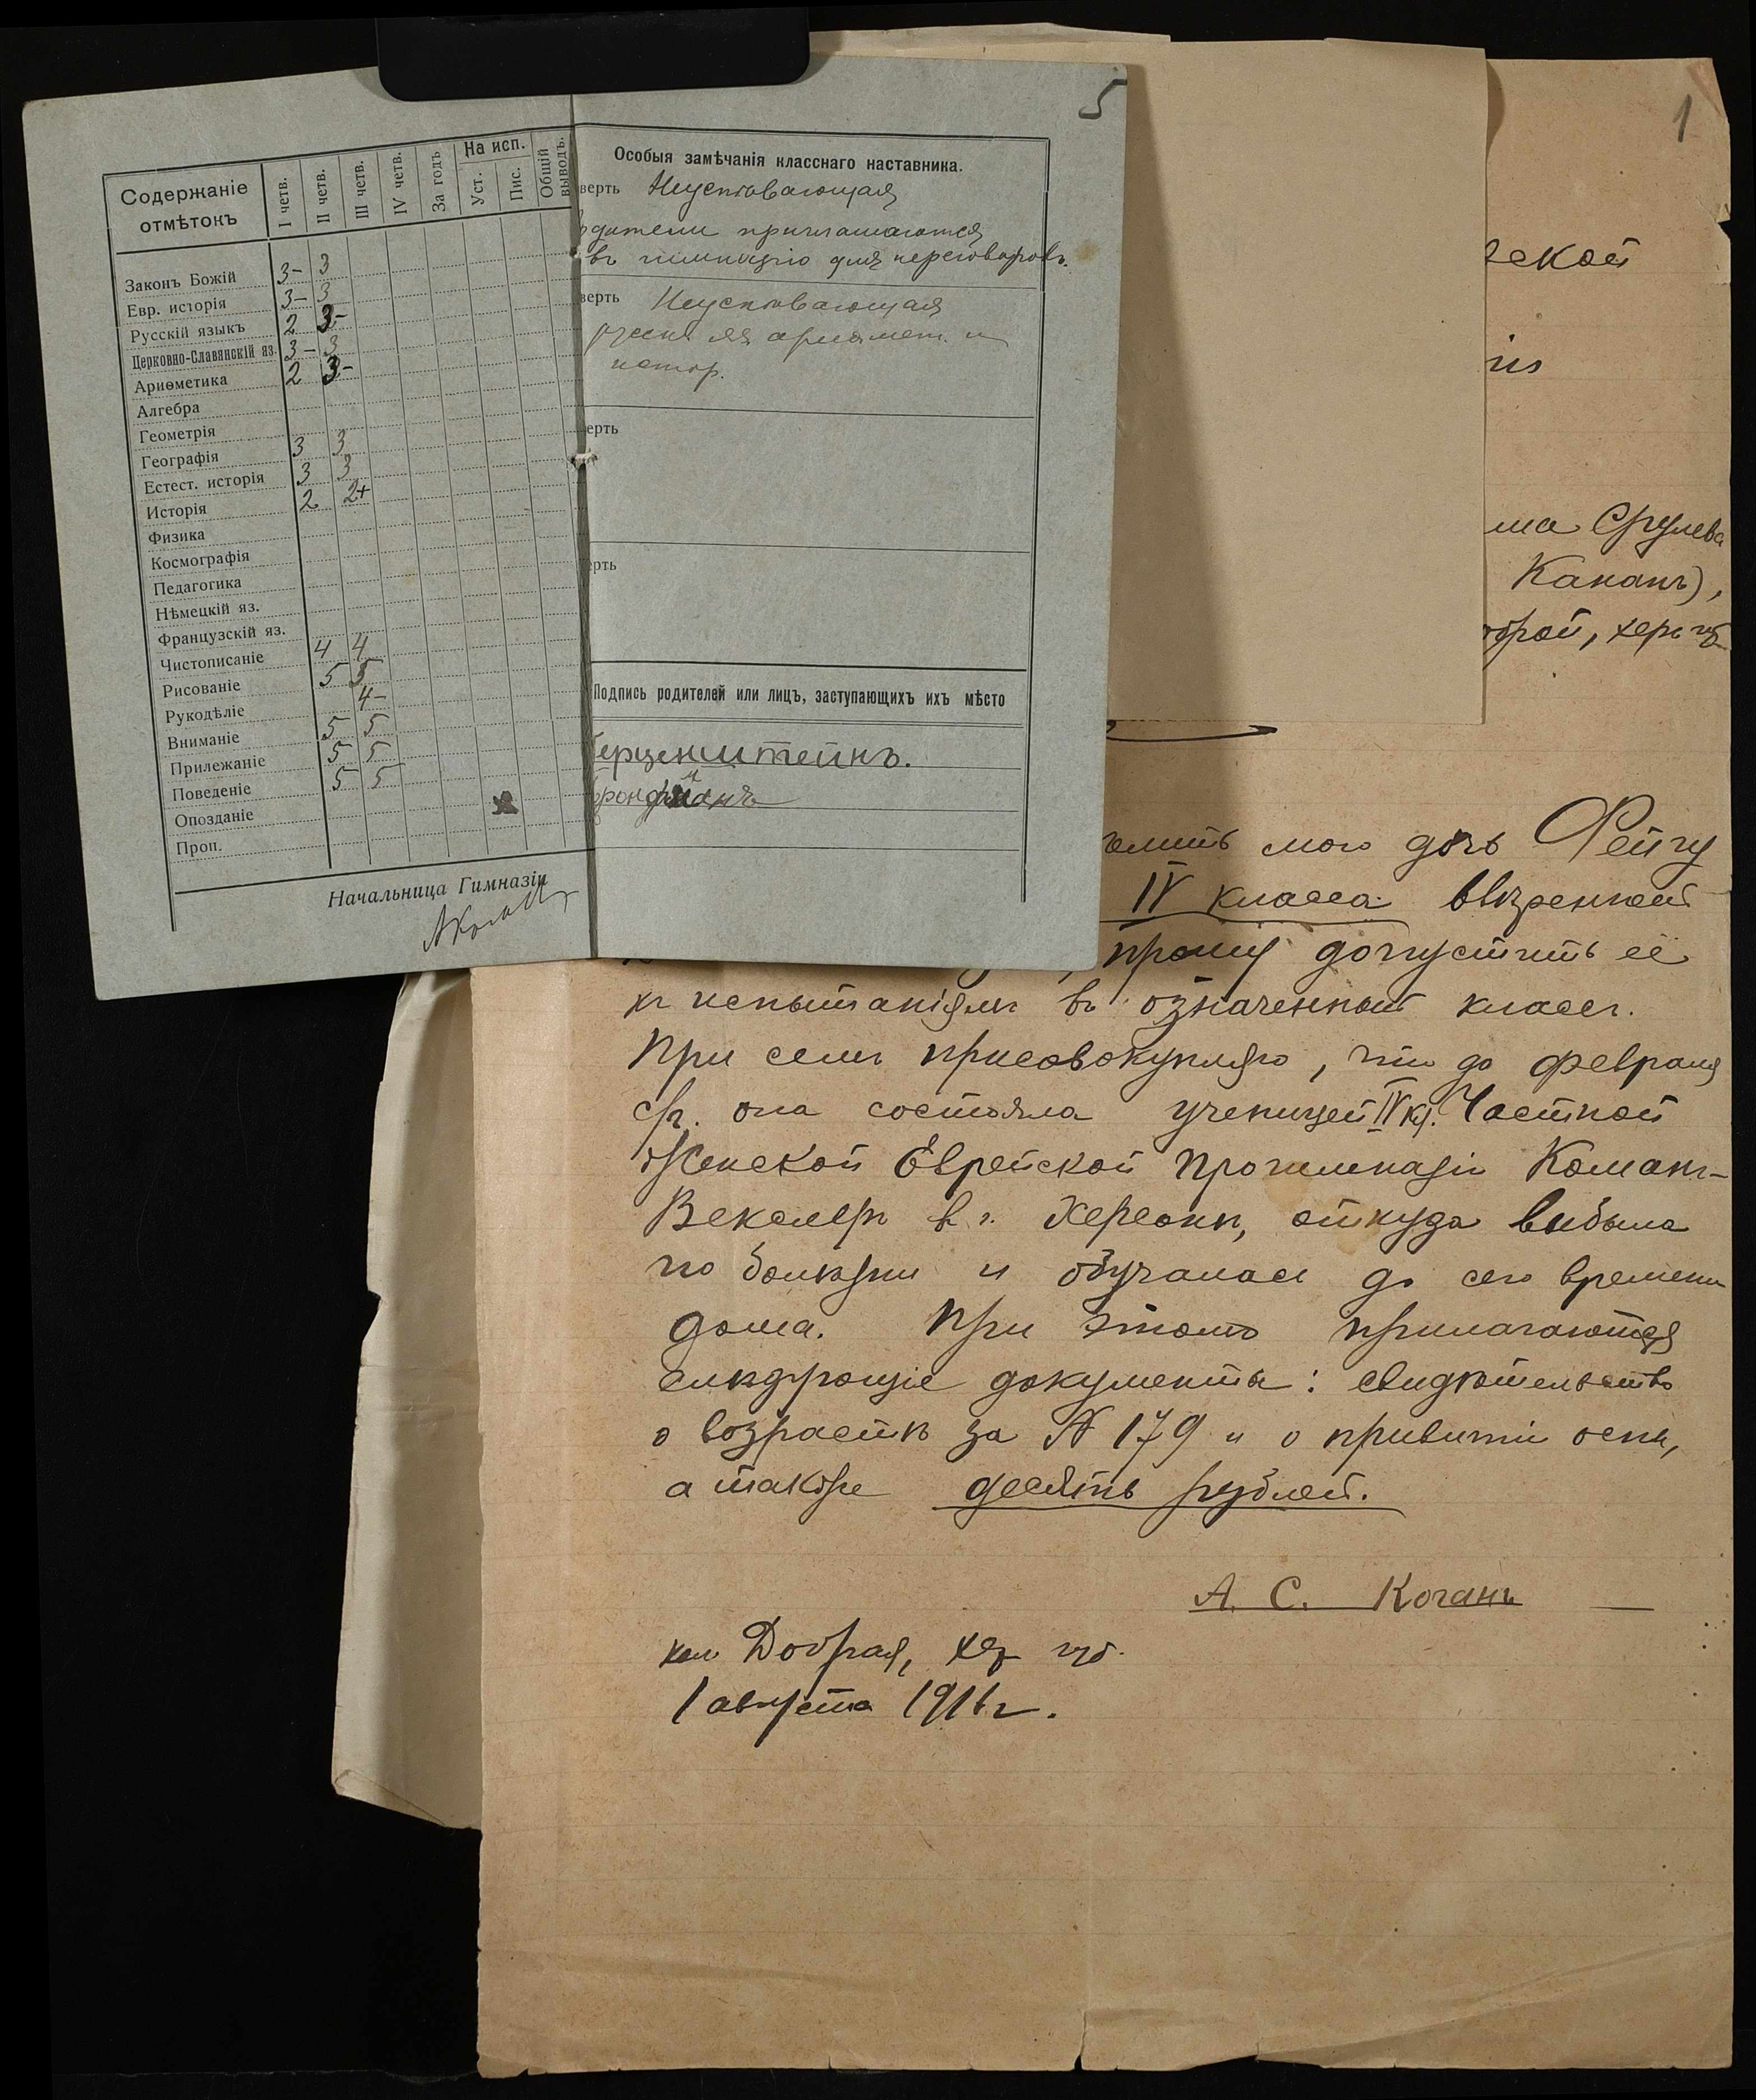 5
Содержаніе отмѣтокъ
I четв.
II четв.
III четв.
IV четв.
За годъ
На исп.
Уст.
Пис.
Общій выводъ.
Законъ Божій 3- 3
Евр. исторія 3- 3
Русскій языкъ 2 3-
Церковно-Славянскій яз. 3- 3
Ариѳметика 2 3-
Алгебра
Геометрія
Географія 3 3
Естест. исторія 3 3
Исторія 2 2+
Физика
Космографія
Педагогика
Нѣмецкій яз.
Французскій яз.
Чистописаніе 4 4
Рисованіе 5 5
Рукодѣліе 4-
Вниманіе 5 5
Прилежаніе 5 5
Поведеніе 5 5
Опозданіе
Проп.
Начальница Гимназіи
Особыя замѣчанія класснаго наставника.
верть Неуспѣвающая
одители приглашаются
въ гимназію для переговоровъ.
верть Неуспѣвающая
русск. яз. ариѳмет. и
истор.
ерть
ерть
Подпись родителей или лицъ, заступающихъ ихъ мѣсто
Герценштейнъ.
1
ской
ма Срулева
Каганъ),
оброй, херс губ
мою дочь Фейгу
IV класса ввѣренной
, прошу допустить её
къ испытаніямъ въ означенный классъ.
При семъ присовокупляю, что до февраля
с/г. она состояла ученицей IV кл. Частной
Женской Еврейской Прогимназіи Команъ-
Векслеръ в г. Херсонѣ, откуда выбыла
по болѣзни и обучалась до сего времени
дома. При этомъ прилагаются
слѣдующіе документы: свидѣтельство
о возрастѣ за № 179 и о привитіи оспы,
а также десять рублей.
А. С. Коганъ
кол Добрая, хер губ.
1 августа 1916 г.